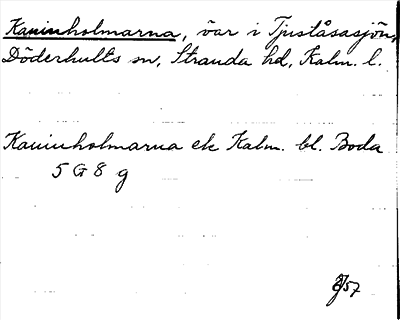 Kaninholmarna, öar i Tjuståsasjön,
Döderhults sn, Stranda hd, Kalm. l.
Kaninholmarna ek Kalm. bl. Boda
5 G 8 g
57